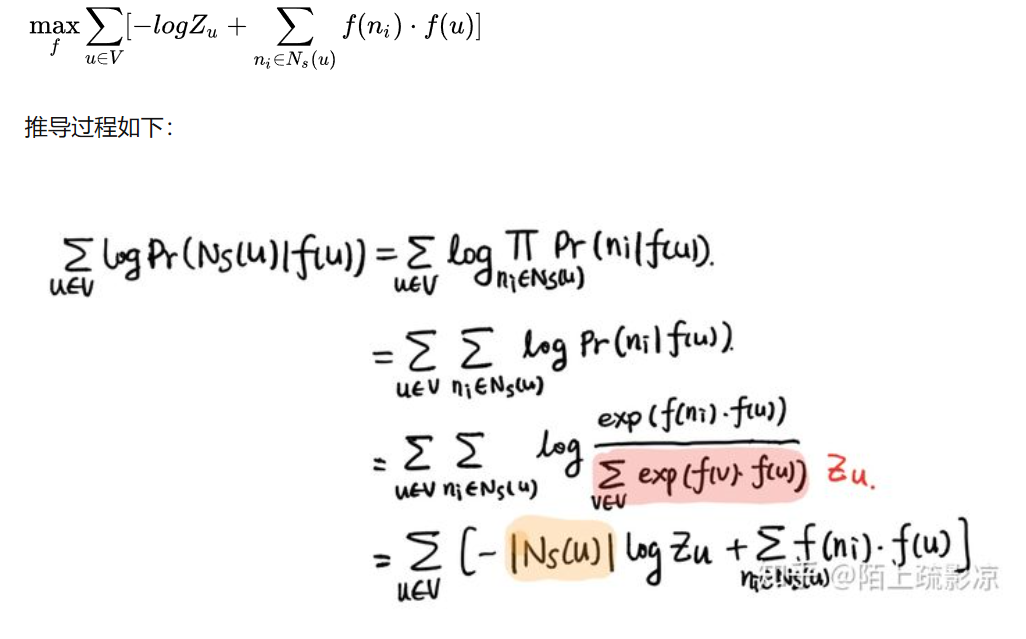 max_f ∑_{u∈V} [−logZ_u + ∑_{n_i∈N_s(u)} f(n_i) · f(u)]
推导过程如下：
∑_{u∈V} log Pr(N_S(u)|f(u)) = ∑_{u∈V} log ∏_{n_i∈N_S(u)} Pr(n_i|f(u)).
= ∑_{u∈V} ∑_{n_i∈N_S(u)} log Pr(n_i|f(u)).
= ∑_{u∈V} ∑_{n_i∈N_S(u)} log exp(f(n_i)·f(u)) / ∑_{v∈V} exp(f(v)·f(u)) Zu.
= ∑_{u∈V} [−|N_S(u)| log Zu + ∑_{n_i∈N_S(u)} f(n_i)·f(u)]
知乎 @陌上疏影凉